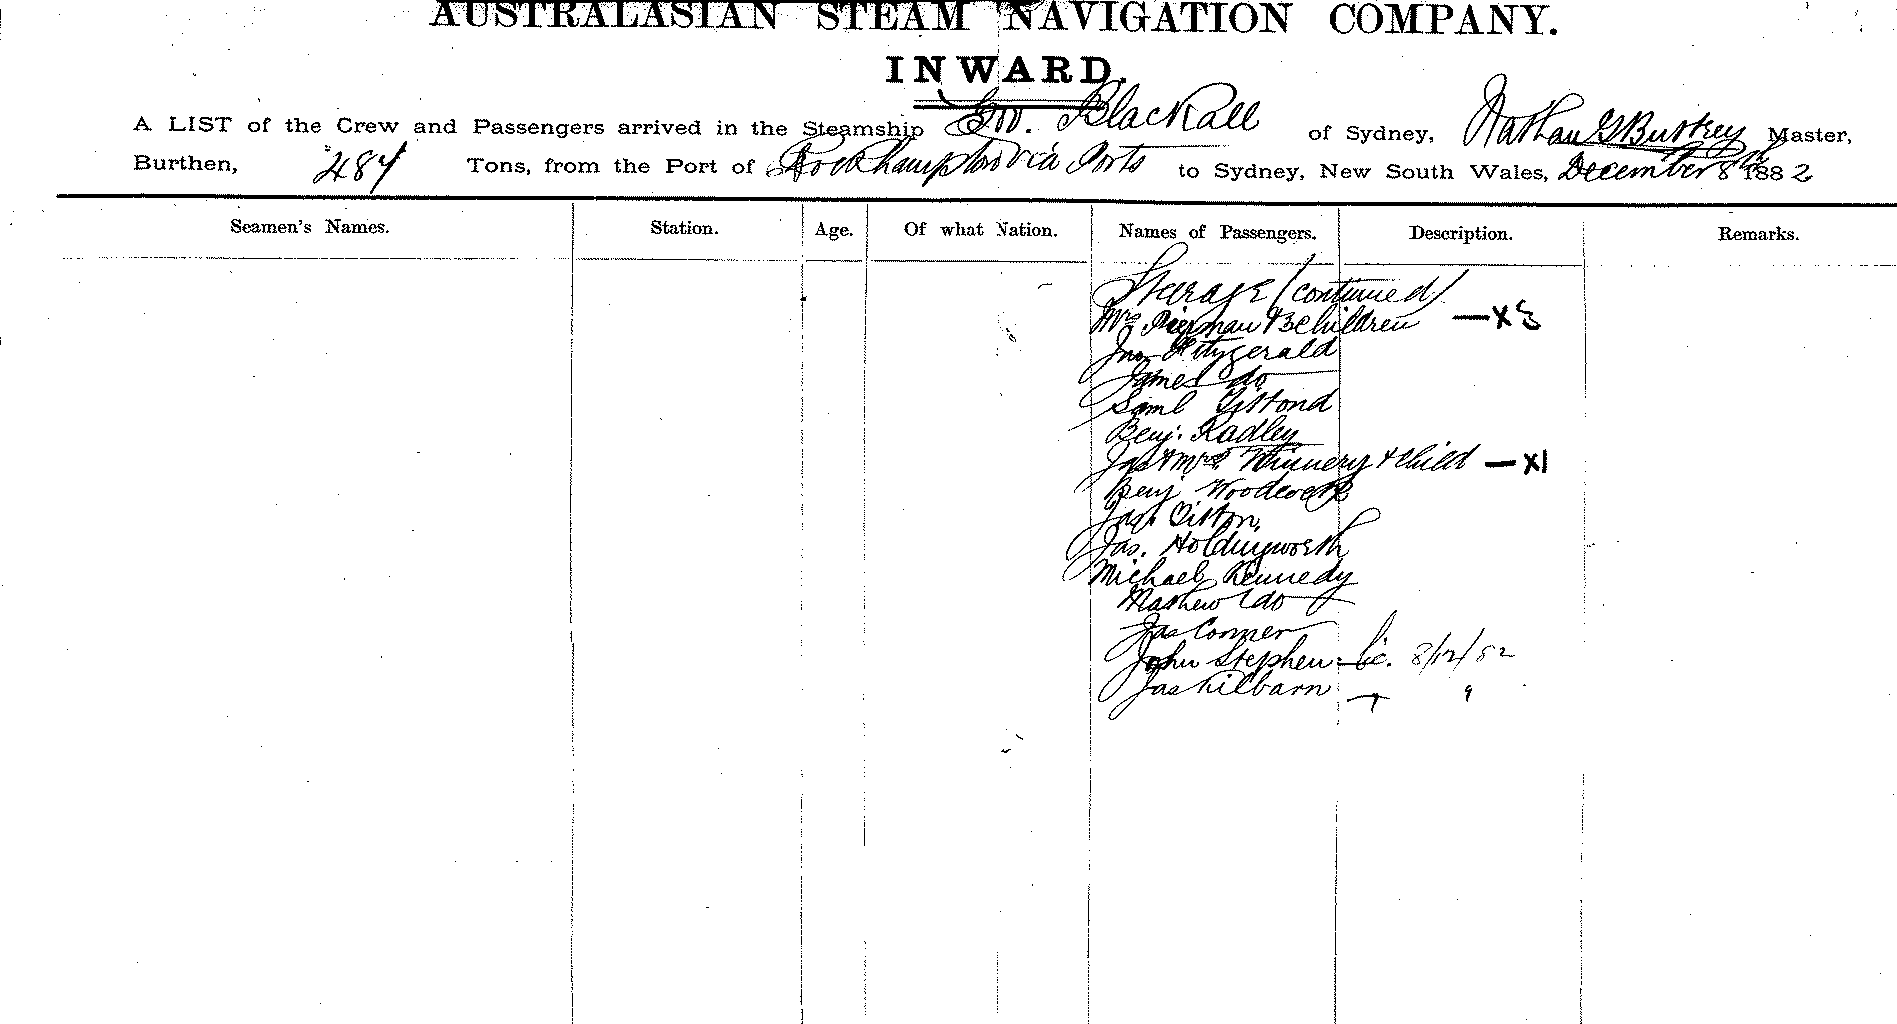 AUSTRALASIAN STEAM NAVIGATION COMPANY.
INWARD.
A LIST of the Crew and Passengers arrived in the Steamship Gov. Blackall of Sydney, Nathan G Master,
Burthen, 484 Tons, from the Port of Rockhampton via Ports to Sydney, New South Wales, December 8th 1882
Seamen's Names. Station. Age. Of what Nation. Names of Passengers. Description. Remarks.
Steerage (continued)
Mrs & 3 children — X 3
Jno Fitzgerald
James do
Saml
Benj. Radley
Jas & Mrs & Child — X1
Benj
Jas.
Jas. Holdingworth
Michael Kennedy
Mathew do
Jas Conner
John Stephen 8/12/82
Jas Kilbarn " "